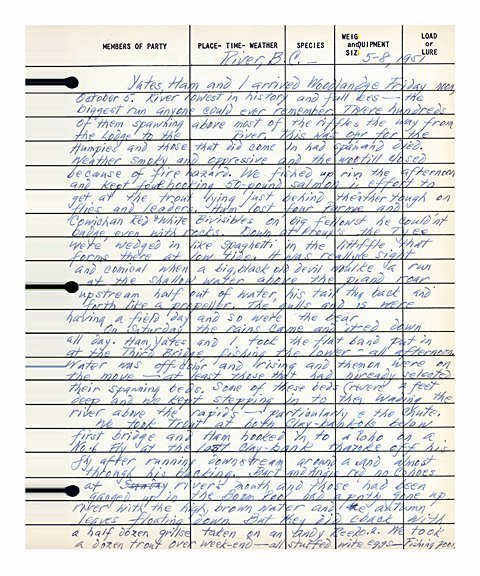 MEMBERS OF PARTY PLACE- TIME- WEATHER SPECIES WEIG and QUIPMENT SIZ LOAD or LURE
River, B.C. — 5-8, 1951
Yates, Ham and I arrived Woodlandge Friday noon
October 5. River lowest in history and full ers — the
biggest run anyone could ever remember. There hundreds
of them spawning above most of the riffles the way from
the Lodge to the River. This was our for the
Humpies and those that did come in had spawnd died.
Weather smoky and oppressive and the closed
because of fire hazard. We fished up rivn the afternoon
and kept foulhooking 50-pound salmon in effort to
get at the trout lying just behind them tough on
flies and leaders. Ham lost four and
Cowichan Red & White Bivisibles on big fellows he couldnt
budge even with rocks. Down at the Tyee
were wedged in like spaghetti in the that
forms there at low tide. It was really sight
and comical when a big, black old devil run
at the shallow water above the and roar
upstream half out of water, his tail back and
forth like a propeller. The gulls and were
having a field day and so were the bear.
On Saturday the rains came and it down
all day. Ham, Yates and I took the flat band put in
at the Third Bridge fishing the lower — all afternoon.
Water was off color and rising and were on
the move — at least those that had selected
their spawning beds. Some of these beds were 2 feet
deep and we kept stepping in to then wading the
river above the rapids — particularly the chute.
We took trout at both Clay-banks below
first bridge and Ham hooked in to a Coho on a
No. 6 fly at the last Clay-bank off his
fly after running downstream around a and almost
through his backing. and no Cohoes
at river's mouth and those had been
ganged up in the Boom Pool had gone up
river with the high, brown water and autumn
leaves floating down. But they did back with
a half dozen grilse taken on an We took
a dozen trout over week-end — all stuffed with eggs — Fishing poor